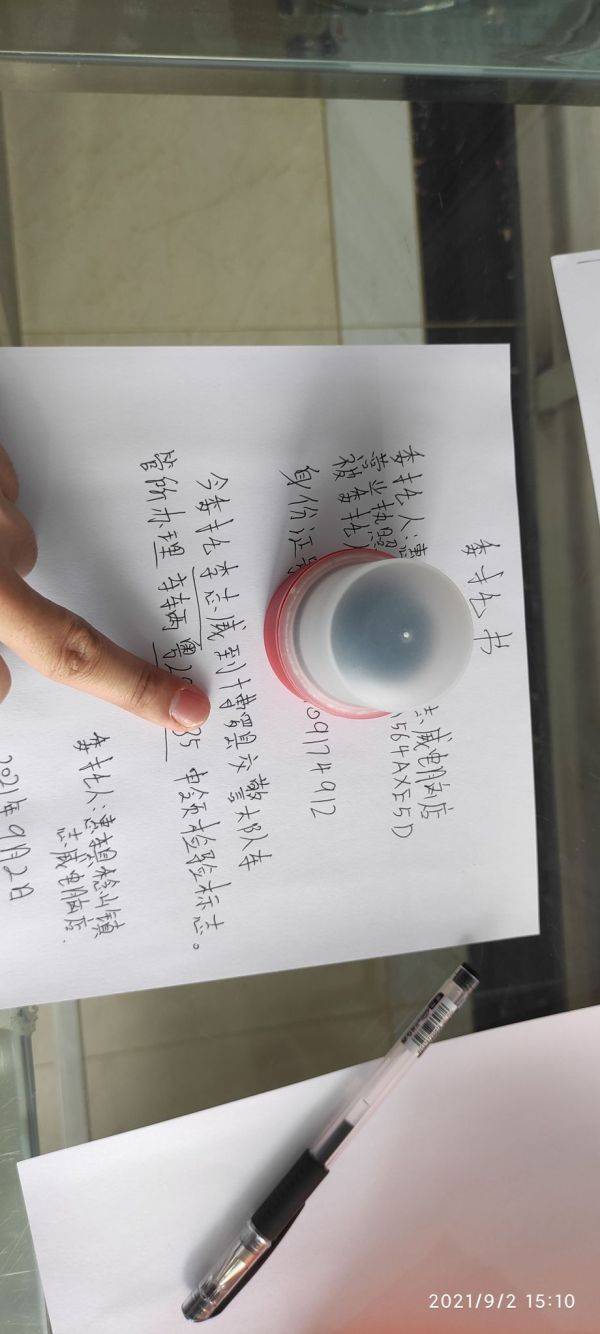 委托书
委托人:惠 志威电脑店
营业执照 564AXE5D
被委托人
身份证号 09174912
今委托李志威到博罗县交警大队车
管所办理车辆粤 35 申领检验标志。
委托人:惠 镇
志威电脑店.
2021年9月2日
2021/9/2 15:10